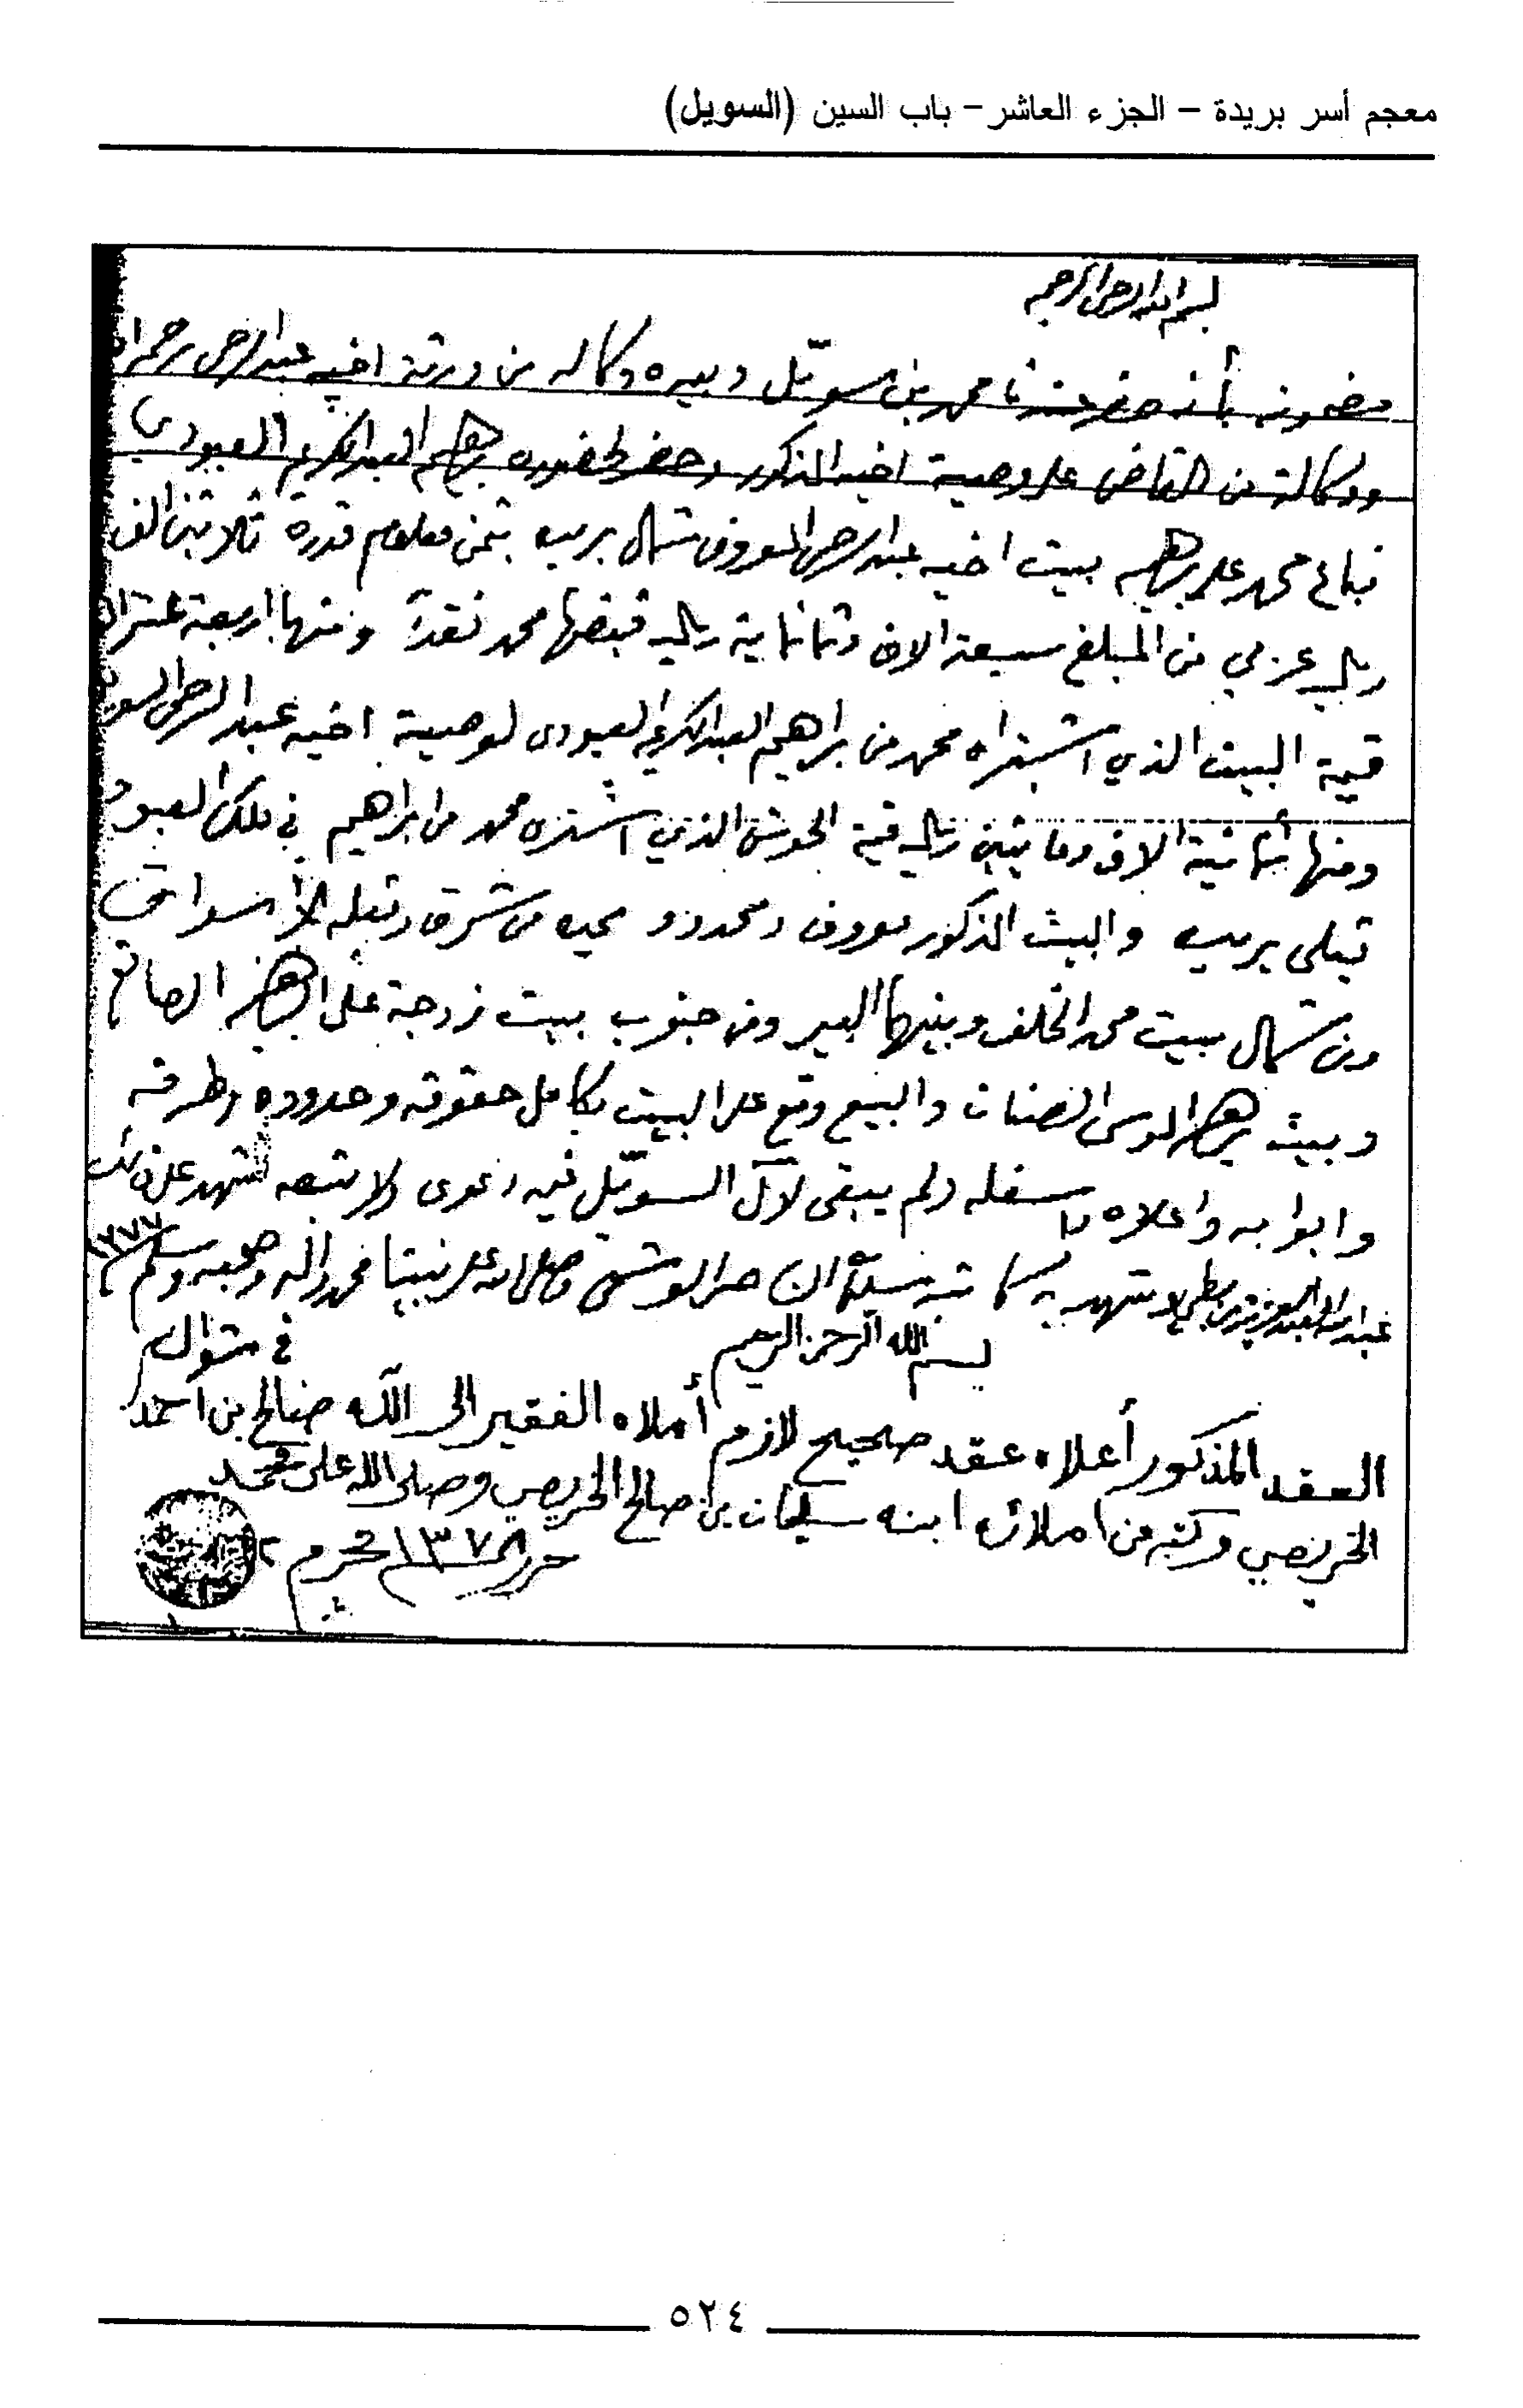 معجم أسر بريدة – الجزء العاشر – باب السين (السويل)
بسم الله الرحمن الرحيم
مضمونه بأنه حضر عندنا محمد بن سويّل وبيده وكاله من ورثة اخيه عبدالرحمن رحمه
ووكالة من القاضي على وصية اخيه المذكور وحضر لحضوره ابرهيم العبدالكريم العبودي
فباع محمد على ابرهيم بيت اخيه عبدالرحمن المعروف شمال بريده بثمن معلوم قدره ثلاثين الف
ريال عربي من المبلغ سبعة الاف وثمانماية ريال قبضها محمد نقداً ومنها اربعة عشر
قيمة البيت الذي اشتراه محمد من ابراهيم العبدالكريم العبودي لوصية اخيه عبدالرحمن
ومنها ثمانية الاف ومايتين ريال قيمة الحوش الذي اشتره محمد من ابراهيم في ملك العبودي
قبلي بريده والبيت المذكور معروف ومحدود يحده من شرق وقبله الأسواق
ومن شمال بيت محمد الخلف وبينهما البير ومن جنوب بيت زوجة علي الصايغ
وبيت ابرهيم الموسى والبيع وقع على البيت بكامل حقوقه وحدوده وطرقه
وابوابه واعلاه واسفله ولم يبقى لآل السويّل فيه دعوى ولا شبهه شهد على ذلك
عبدالله العبدالعزيز شهد به كاتبه سليمان وصلى الله على نبينا محمد واله وصحبه وسلم ١٣٧٧
في شوال
بسم الله الرحمن الرحيم
العقد المذكور أعلاه عقد صحيح لازم أملاه الفقير الى الله صالح بن احمد
الخريصي وكتبه من املائه ابنه سليمان بن صالح الخريصي وصلى الله على محمد
حرر ١٣٧٨ محرم
٥٢٤